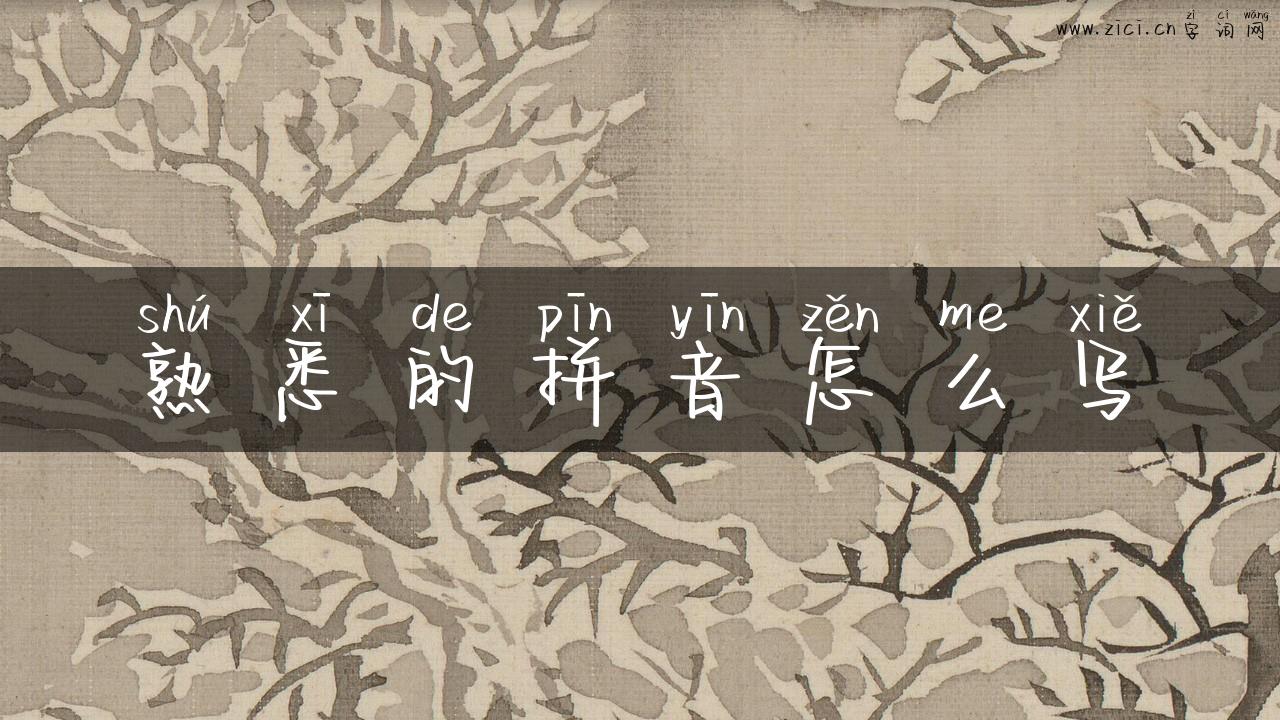 zì cí wǎng
www.zici.cn 字 词 网
shú xī de pīn yīn zěn me xiě
熟 悉 的 拼 音 怎 么 写